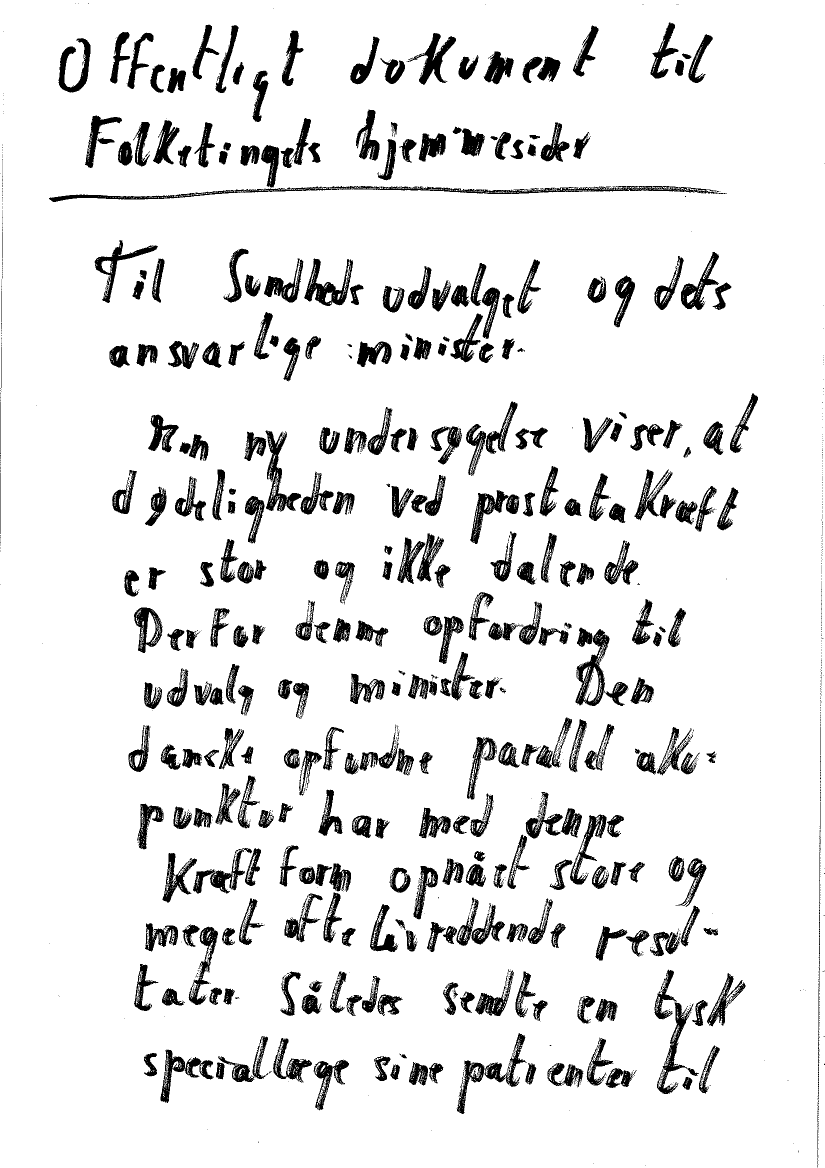 Offentligt dokument til
Folketingets hjemmesider
Til Sundhedsudvalget og dets
ansvarlige minister.
En ny undersøgelse viser, at
dødeligheden ved prostatakræft
er stor og ikke dalende.
Derfor denne opfordring til
udvalg og minister. Den
danske opfundne parallel aku-
punktur har med denne
kræftform opnået store og
meget ofte livreddende resul-
tater. Således sendte en tysk
speciallæge sine patienter til